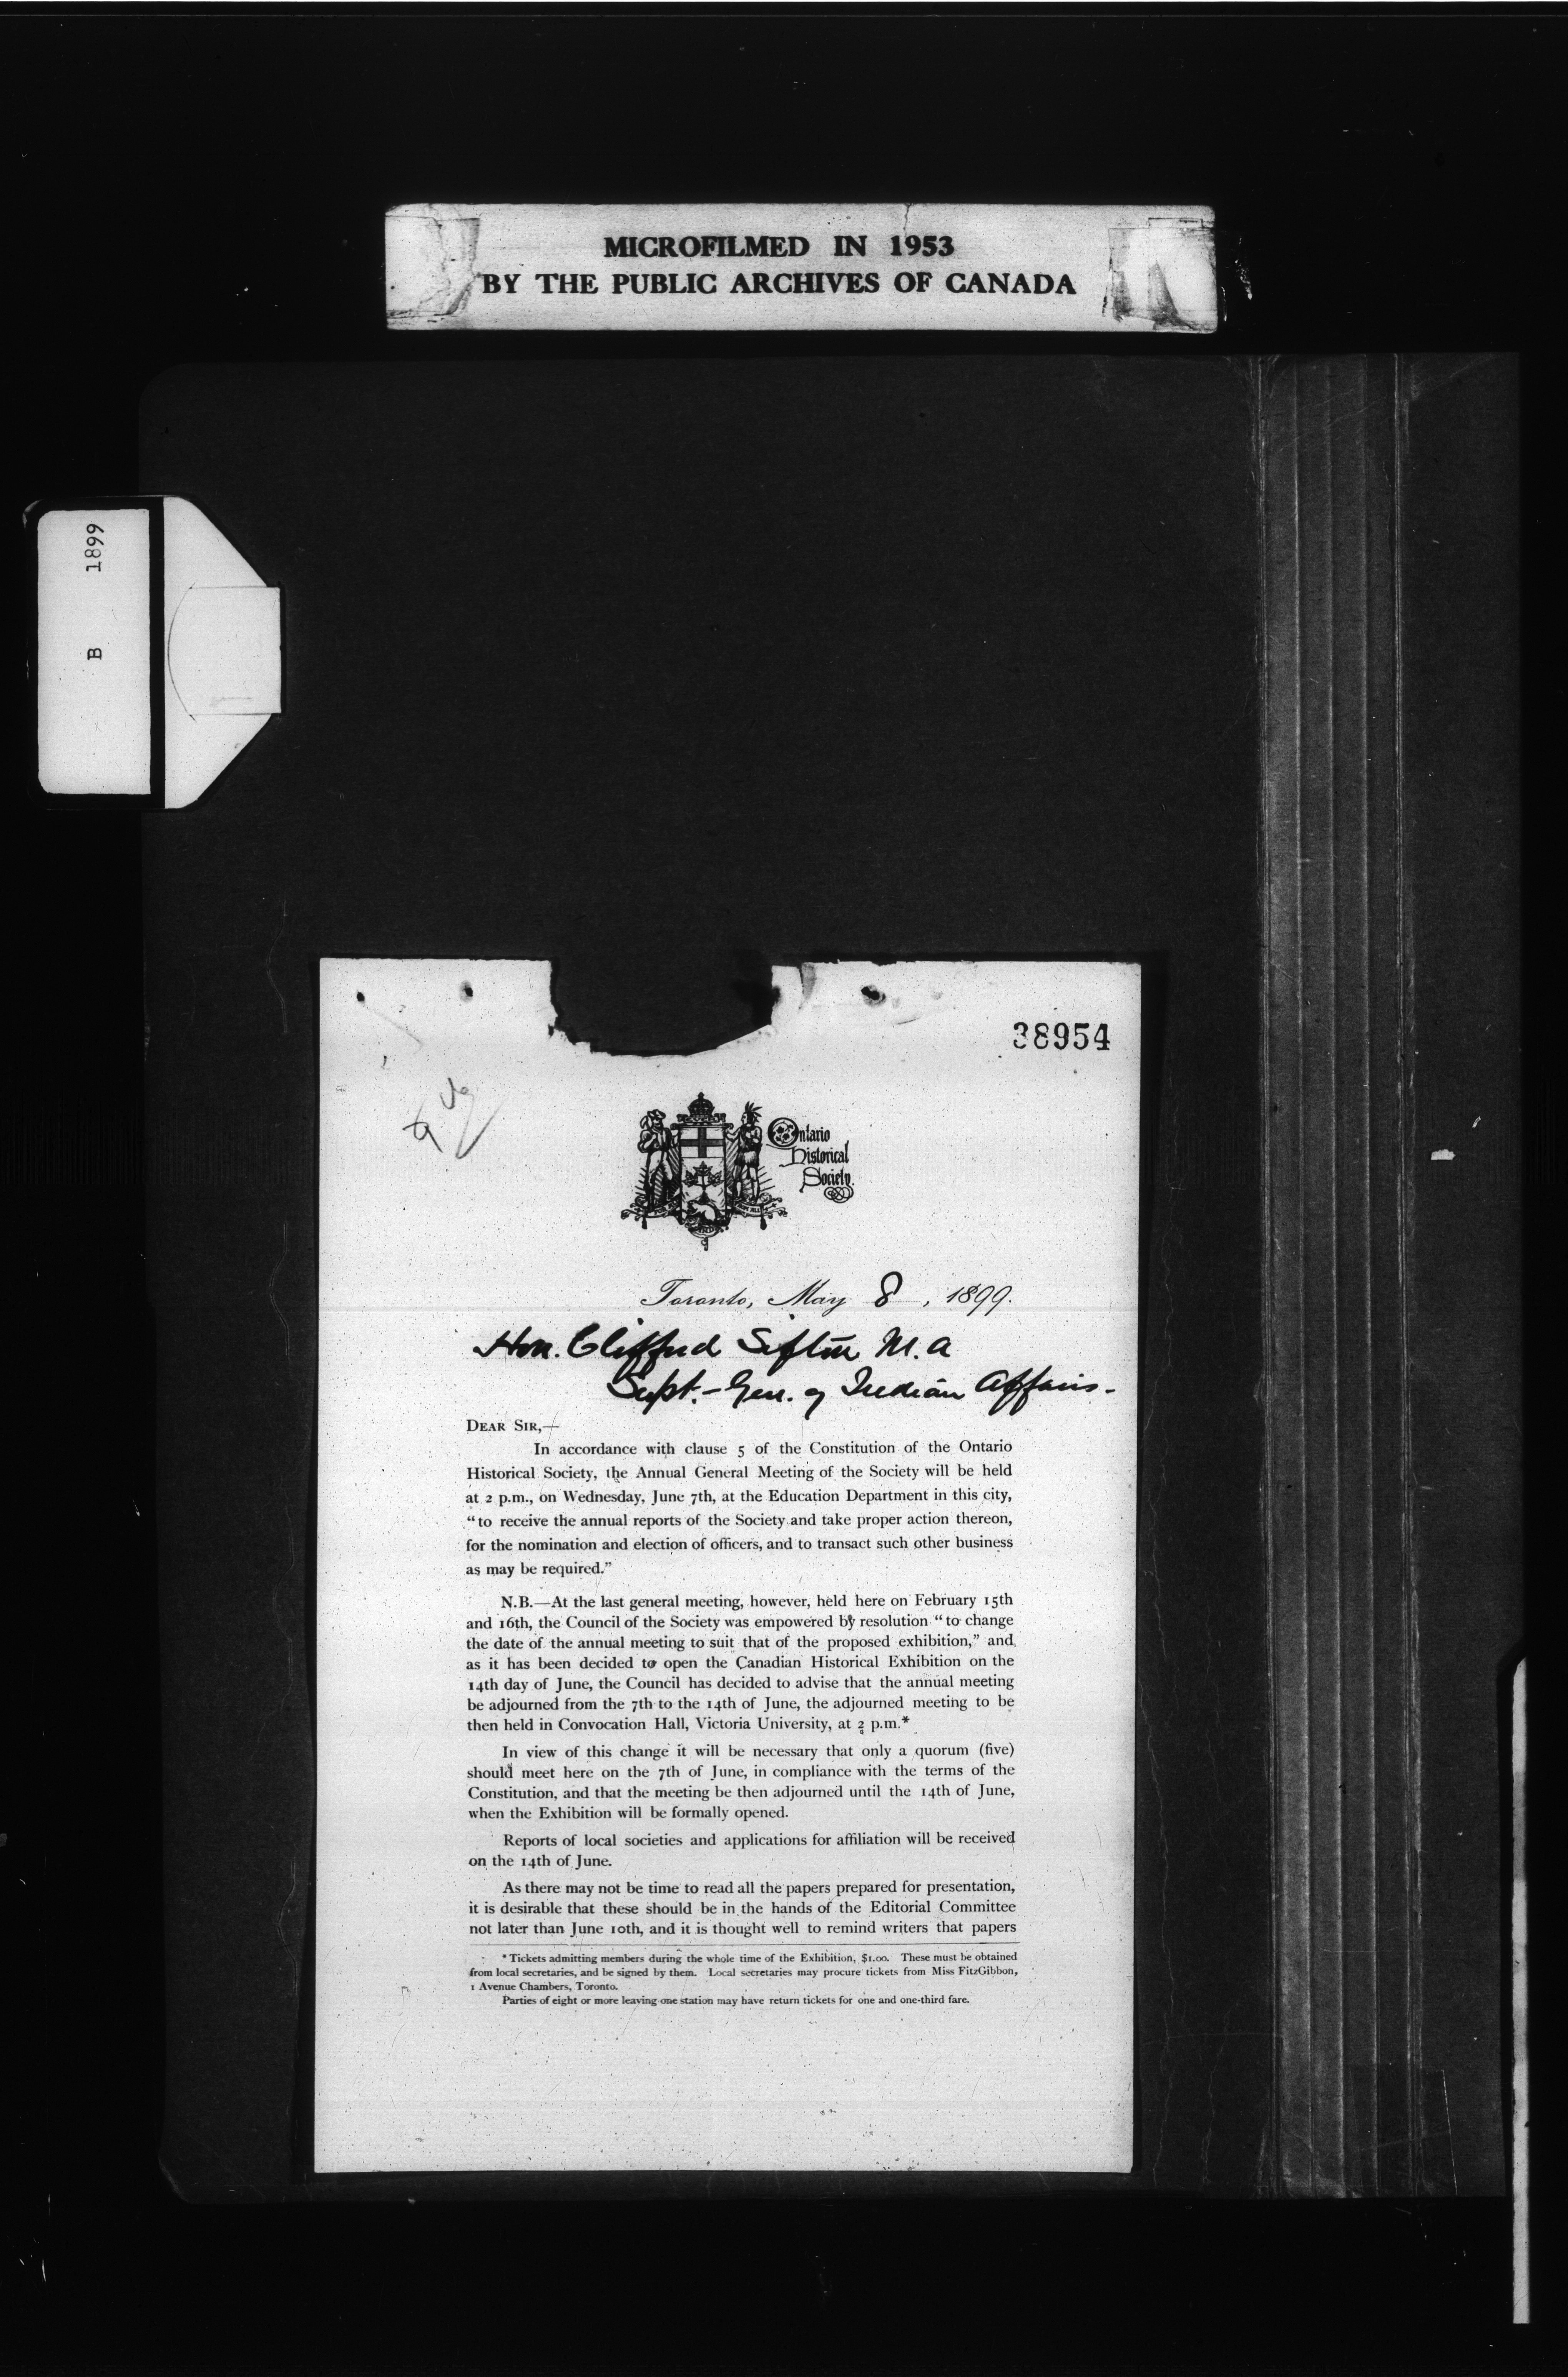 MICROFILMED IN 1953
BY THE PUBLIC ARCHIVES OF CANADA
B 1899
38954
Ontario
Historical
Society.
Toronto, May 8, 1899.
Hon. Clifford Sifton M.A
Supt.-Gen. of Indian Affairs-
DEAR SIR,—
In accordance with clause 5 of the Constitution of the Ontario
Historical Society, the Annual General Meeting of the Society will be held
at 2 p.m., on Wednesday, June 7th, at the Education Department in this city,
“to receive the annual reports of the Society and take proper action thereon,
for the nomination and election of officers, and to transact such other business
as may be required.”
N.B.—At the last general meeting, however, held here on February 15th
and 16th, the Council of the Society was empowered by resolution “to change
the date of the annual meeting to suit that of the proposed exhibition,” and
as it has been decided to open the Canadian Historical Exhibition on the
14th day of June, the Council has decided to advise that the annual meeting
be adjourned from the 7th to the 14th of June, the adjourned meeting to be
then held in Convocation Hall, Victoria University, at 2 p.m.*
In view of this change it will be necessary that only a quorum (five)
should meet here on the 7th of June, in compliance with the terms of the
Constitution, and that the meeting be then adjourned until the 14th of June,
when the Exhibition will be formally opened.
Reports of local societies and applications for affiliation will be received
on the 14th of June.
As there may not be time to read all the papers prepared for presentation,
it is desirable that these should be in the hands of the Editorial Committee
not later than June 10th, and it is thought well to remind writers that papers
* Tickets admitting members during the whole time of the Exhibition, $1.00. These must be obtained
from local secretaries, and be signed by them. Local secretaries may procure tickets from Miss FitzGibbon,
1 Avenue Chambers, Toronto.
Parties of eight or more leaving one station may have return tickets for one and one-third fare.